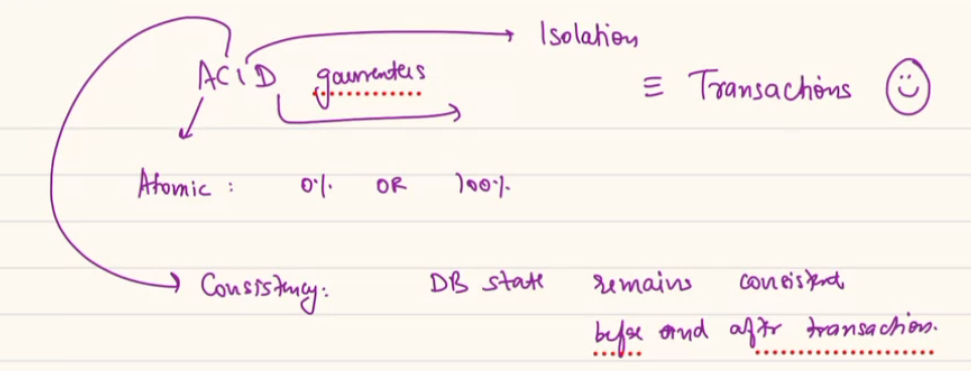 Isolation
ACID gaurenters ≡ Transactions
Atomic : 0% OR 100%
Consistency: DB state remains consistent
before and after transaction.